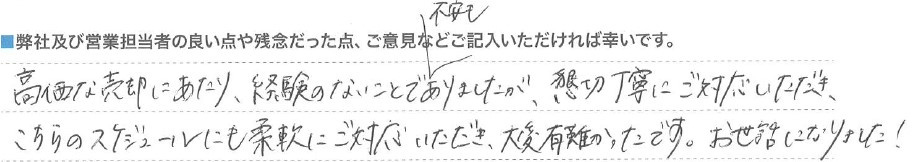 ■弊社及び営業担当者の良い点や残念だった点、ご意見などご記入いただければ幸いです。
高価な売却にあたり、経験のないことで不安もありましたが、懇切丁寧にご対応いただき、
こちらのスケジュールにも柔軟にご対応いただき、大変有難かったです。お世話になりました！